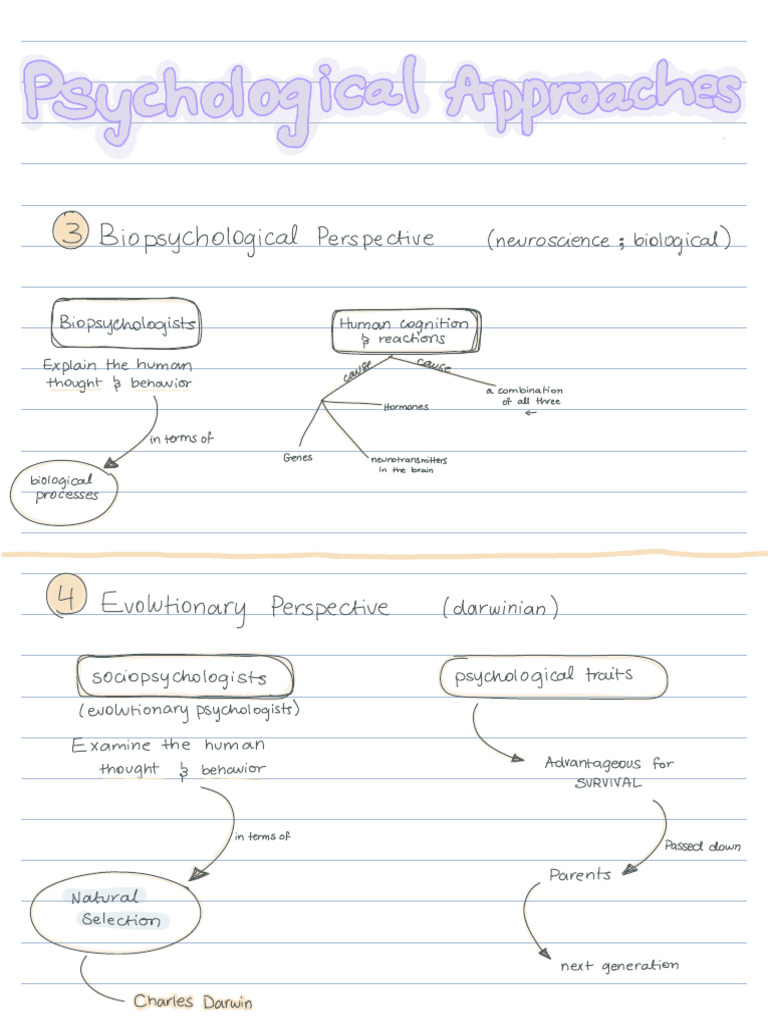 Psychological Approaches
3 Biopsychological Perspective (neuroscience ; biological)
Biopsychologists
Explain the human
thought & behavior
in terms of
biological
processes
Human cognition
& reactions
cause
cause
Hormones
Genes
neurotransmitters
in the brain
a combination
of all three
←
4 Evolutionary Perspective (darwinian)
sociopsychologists
(evolutionary psychologists)
Examine the human
thought & behavior
in terms of
Natural
Selection
Charles Darwin
psychological traits
Advantageous for
SURVIVAL
Passed down
Parents
next generation